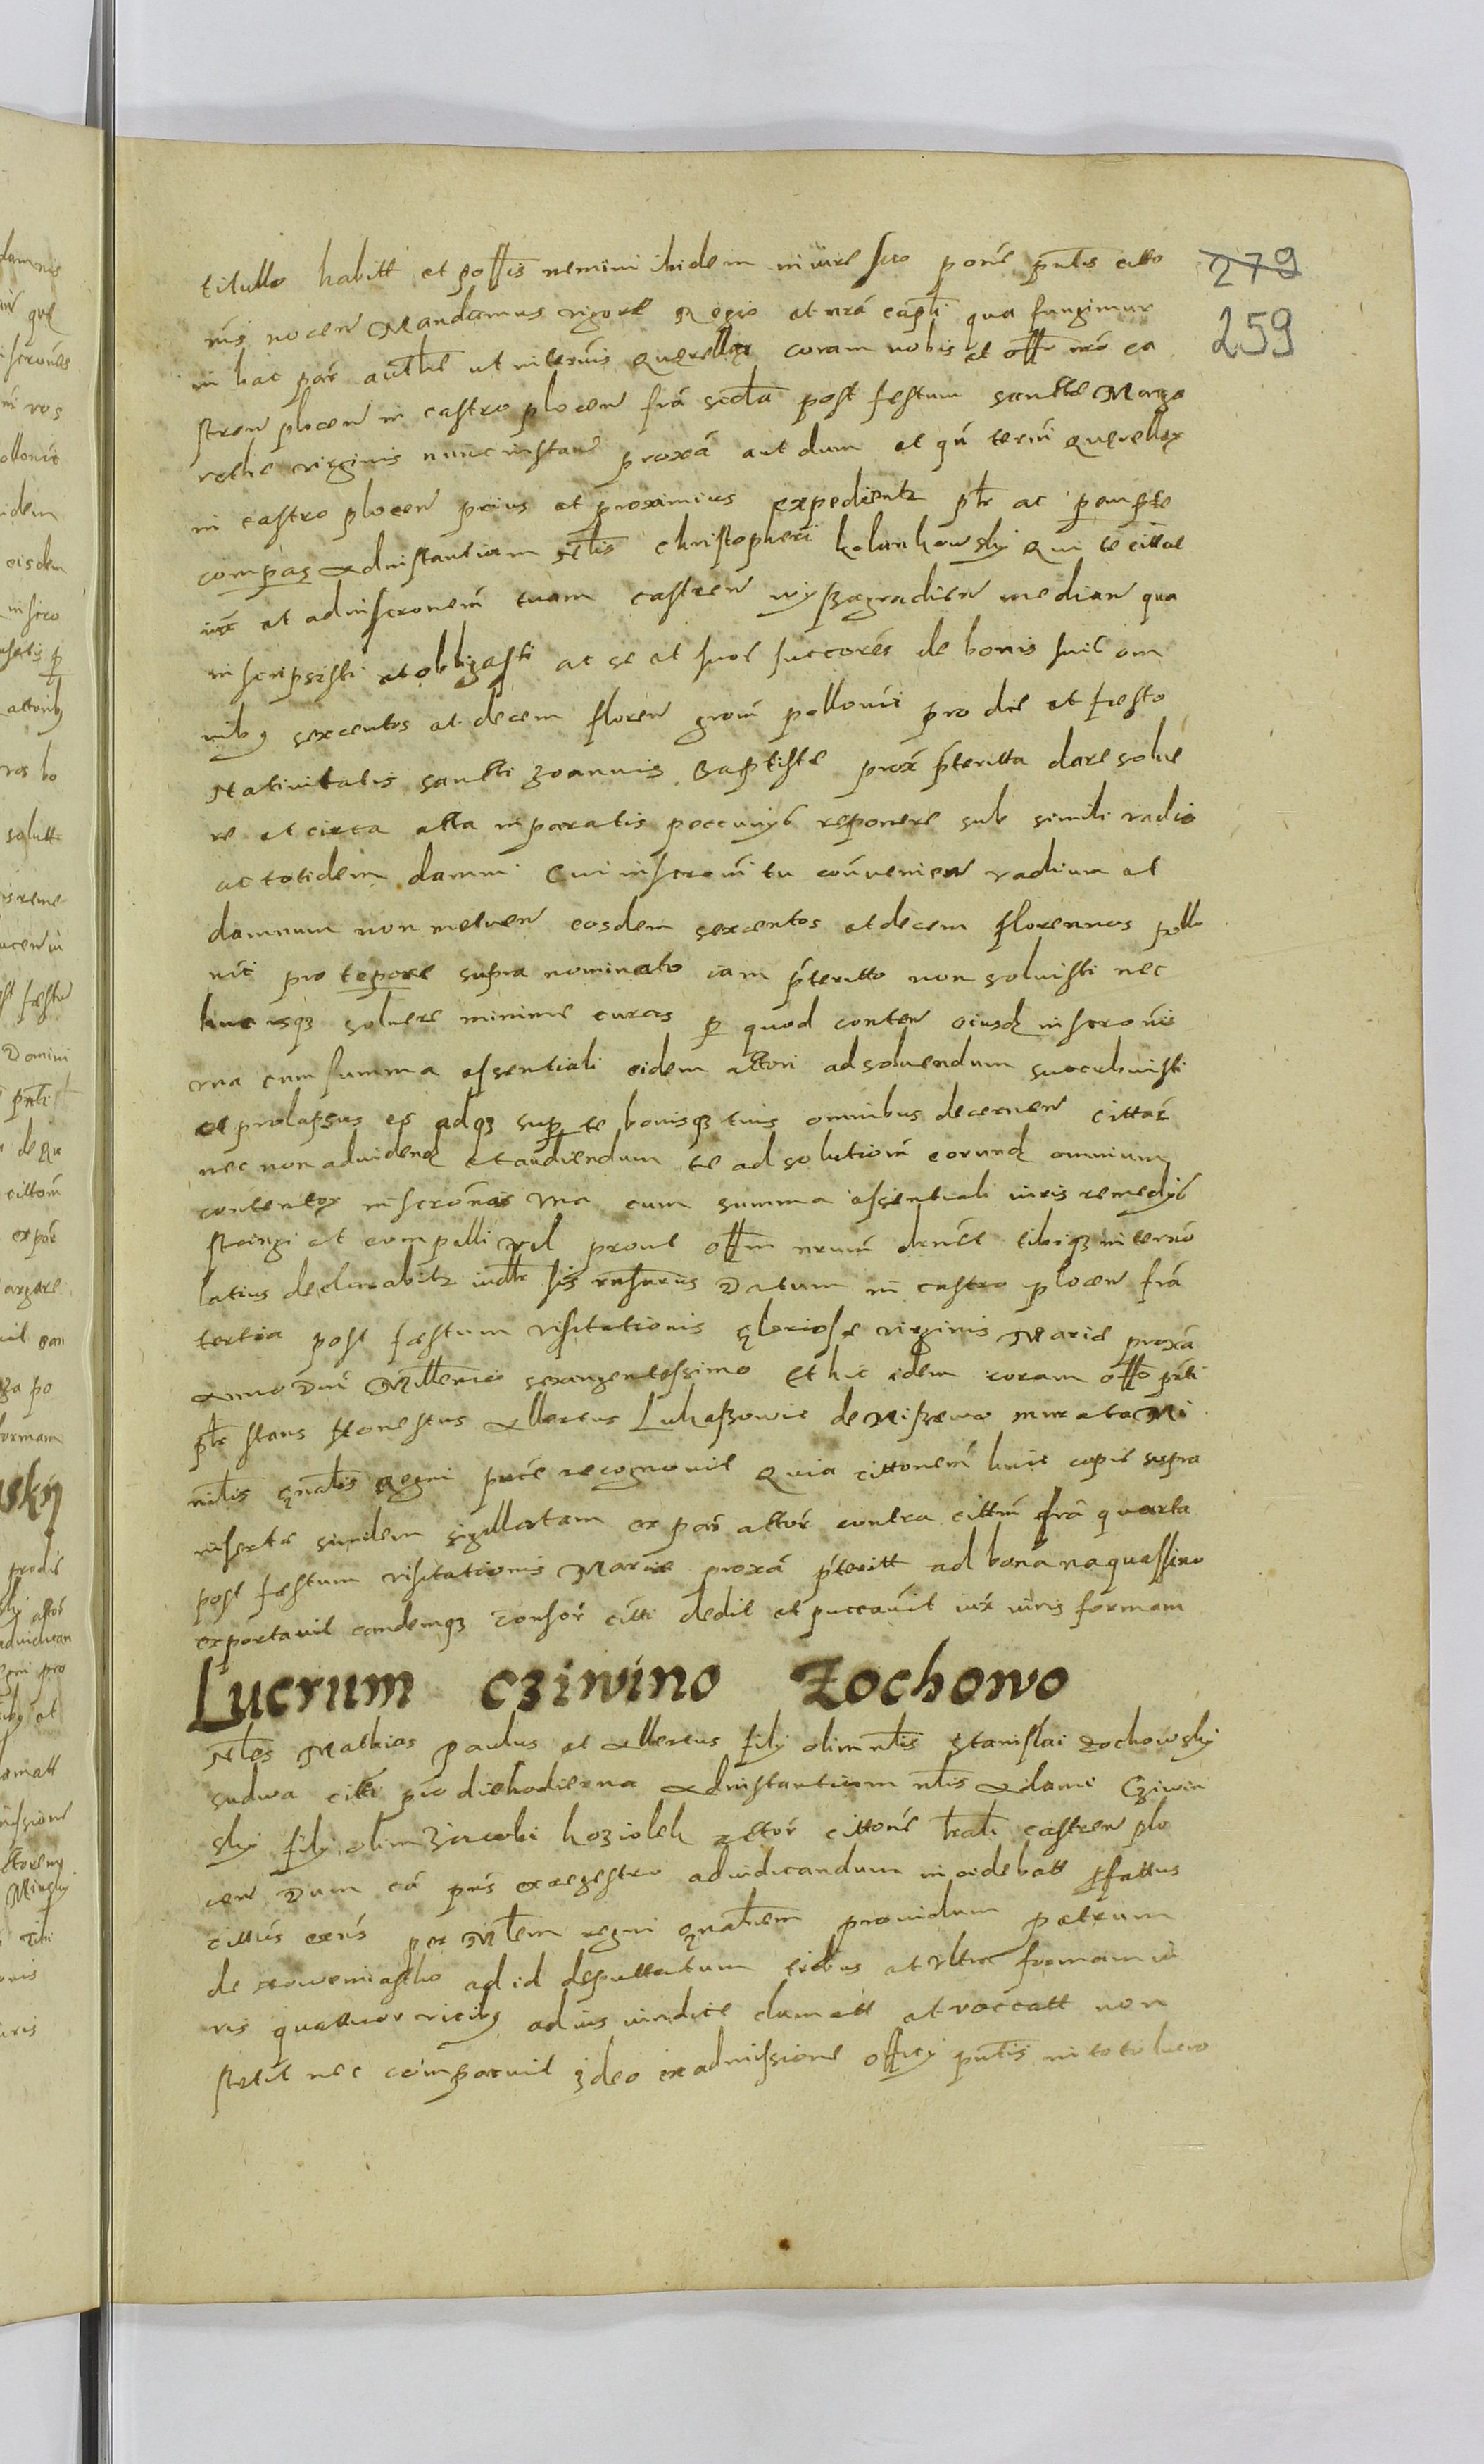 titullo habitt et possis nemini ibidem in iure scto ponẽ pñtis citto
279
nis nocen Mandamus rigore Regio et nrã capti qua fungimur
259
in hac par autthe ut in terñis querellar coram nobis et offo nro ca
stren plocen in castro plocen frã scda post festum sanctæ Marga
rethe virginis nunc instan proxã aut dum et qñ terñi querellar
in castro plocen prius et proximius expedientr ptr ac perempte
compareas Ad instantiam Nblis Christopheri kolankowsky Qui te cittat
iux et ad inscronem tuam castren wyszegradien median qua
inscripsisti et obligasti ac se et suos succores de bonis suis om
nibq sexcentos et decem floren groñ pollonici pro die et festo
Nativitatis sancti Joannis Baptiste prox pteritta dare solue
re et circa atta in paratis peccunijs reponere sub simili vadio
ac totidem damni Cui inscroni tu convenien vadium et
damnum non metuen eosdem sexcentos et decem florennos pollo
nici pro tepore supra nominato iam pteritto non soluisti nec
huc usqz soluere minime curas p quod conten eiusdq inscronis
vna cum summa essentiali eidem attori ad soluendum succubuisti
et prolapsus es adqz sup te bonisqz tuis omnibus decernen cittat
nec non ad videndq et audiendum te ad solutioñ eorundq omnium
contentor inscronis vna cum summa essentiali iuris remedijs
stringi et compelli vel prout offm nrum dnct tibiqz in termo
latius declarabitr iudtr sis rnsurus Datum in castro plocen frã
tertia post festum visitationis gloriose virginis Marie proxã
Anno Dni Millenio sexangentessimo Et hic idem coram offo pñti
ptr stans Honestus Albertus Lukaszowic de Miszewo murata Mi
nitlis gnalis Regni pñte recognovit Quia cittonem huic copie supra
inserte simdem sigillatam ex par attor contra cittm frã quarta
post festum visitationis Marie proxã pteritt ad bona naquassino
exportavit eandemqz consor citti dedit et puccavit iux iuris formam
Lucrum cziwino Zochowo
Nbles Mathias paulus et Albertus filij olim nblis Stanislai zochowsky
sudwa citti pro die hodierna Ad instantiam nblis Adami Cziwin
sky filij olim Jacobi koziolek actor cittone trali castren plo
cen Dum cã pns ex regestro adiudicandum incidebatt pfattus
cittus exns per Mtlem regni gnalem providum petrum
de nowemiastho ad id deputtatum tribus at vltra formam iu
ris quattuor vicibq ad ius iudice clamatt et voccatt non
stetit nec comparuit Jdeo ex admissione officy pntis in toto lucro